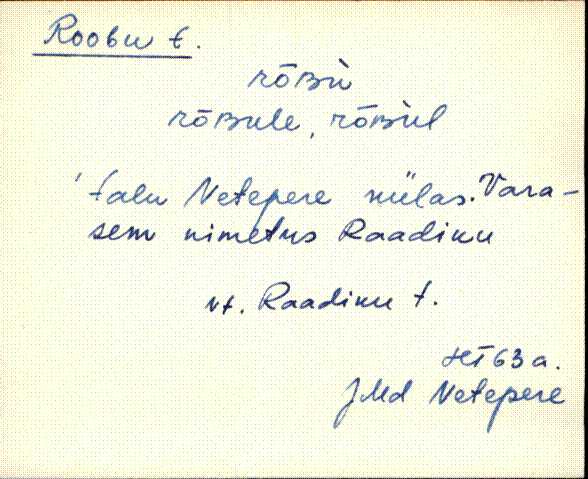 Roobu t.
rōʙu̇
rōʙule, rōʙu̇l
'talu Netepere külas. Vara-
sem nimetus Raadiku
vt. Raadiku t.
63 a.
JMd Netepere